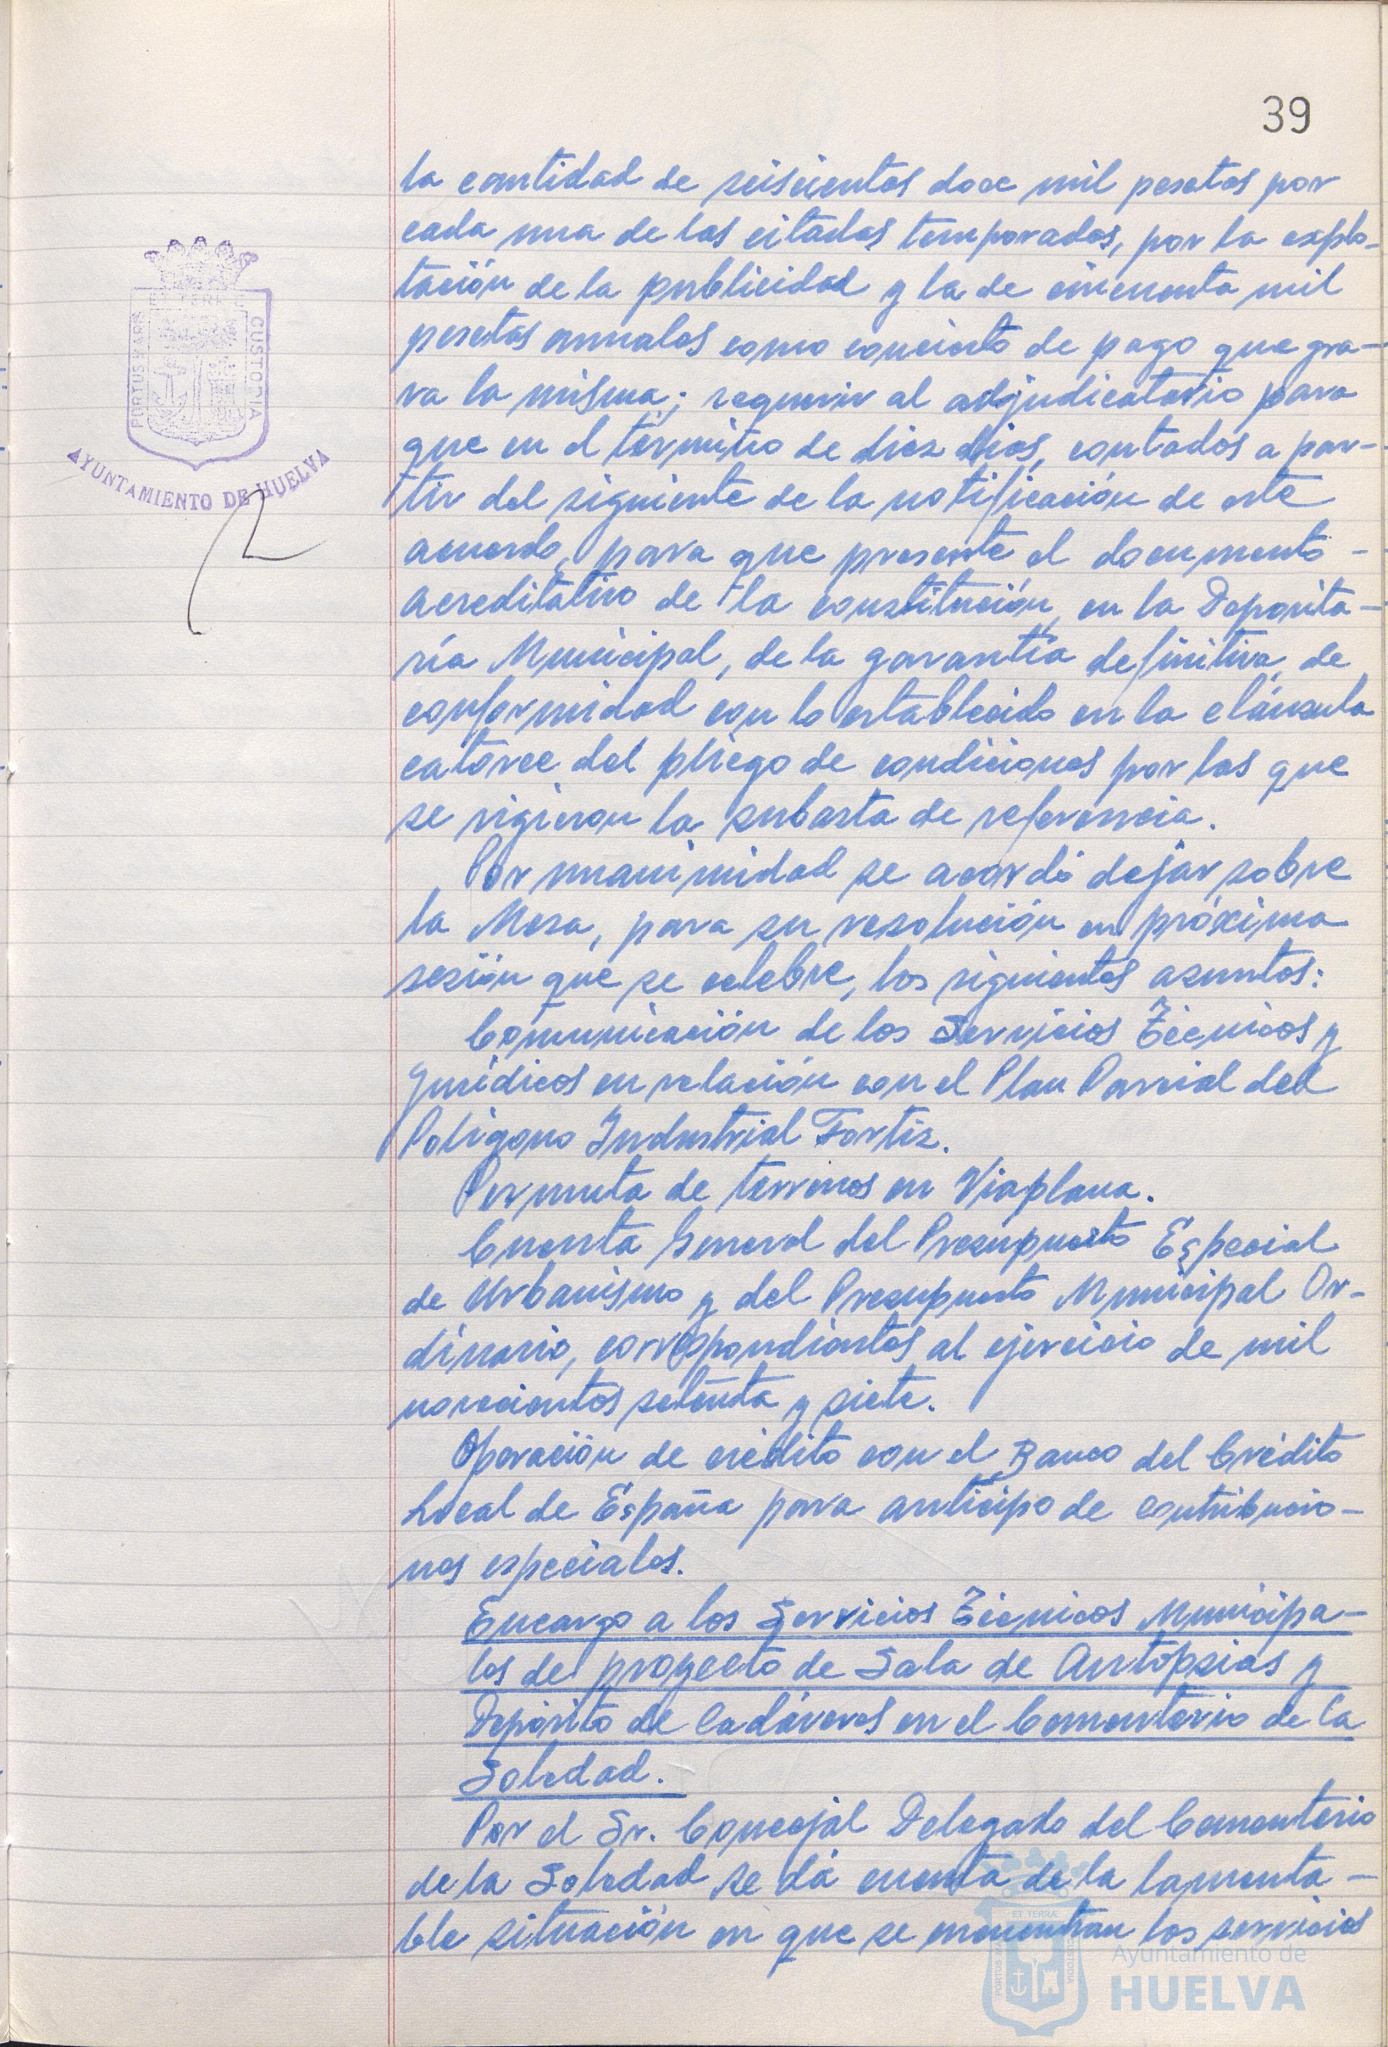 39
la cantidad de seiscientas doce mil pesetas por
cada una de las citadas temporadas, por la explo-
tación de la publicidad y la de cincuenta mil
pesetas anuales como concierto de pago que gra-
va la misma; requerir al adjudicatario para
que en el término de diez días, contados a par-
tir del siguiente de la notificación de este
acuerdo, para que presente el documento
acreditativo de la constitución, en la Deposita-
ría Municipal, de la garantía definitiva, de
conformidad con lo establecido en la cláusula
catorce del pliego de condiciones por las que
se rigieron la subasta de referencia.
Por unanimidad se acordó dejar sobre
la Mesa, para su resolución en próxima
sesión que se celebre, los siguientes asuntos:
Comunicación de los Servicios Técnicos y
Jurídicos en relación con el Plan Parcial del
Polígono Industrial Fortiz.
Permuta de terrenos en Viaplana.
Cuenta General del Presupuesto Especial
de Urbanismo y del Presupuesto Municipal Or-
dinario, correspondientes al ejercicio de mil
novecientos setenta y siete.
Operación de crédito con el Banco del Crédito
Local de España para anticipo de contribucio-
nes especiales.
Encargo a los Servicios Técnicos Municipa-
les del proyecto de Sala de Autopsias y
Depósito de Cadáveres en el Cementerio de la
Soledad.
Por el Sr. Concejal Delegado del Cementerio
de la Soledad se dá cuenta de la lamenta-
ble situación en que se encuentran los servicios
PORTUS MARIS ET TERRE CUSTODIA
AYUNTAMIENTO DE HUELVA
PORTUS MARIS ET TERRÆ CUSTODIA
Ayuntamiento de
HUELVA